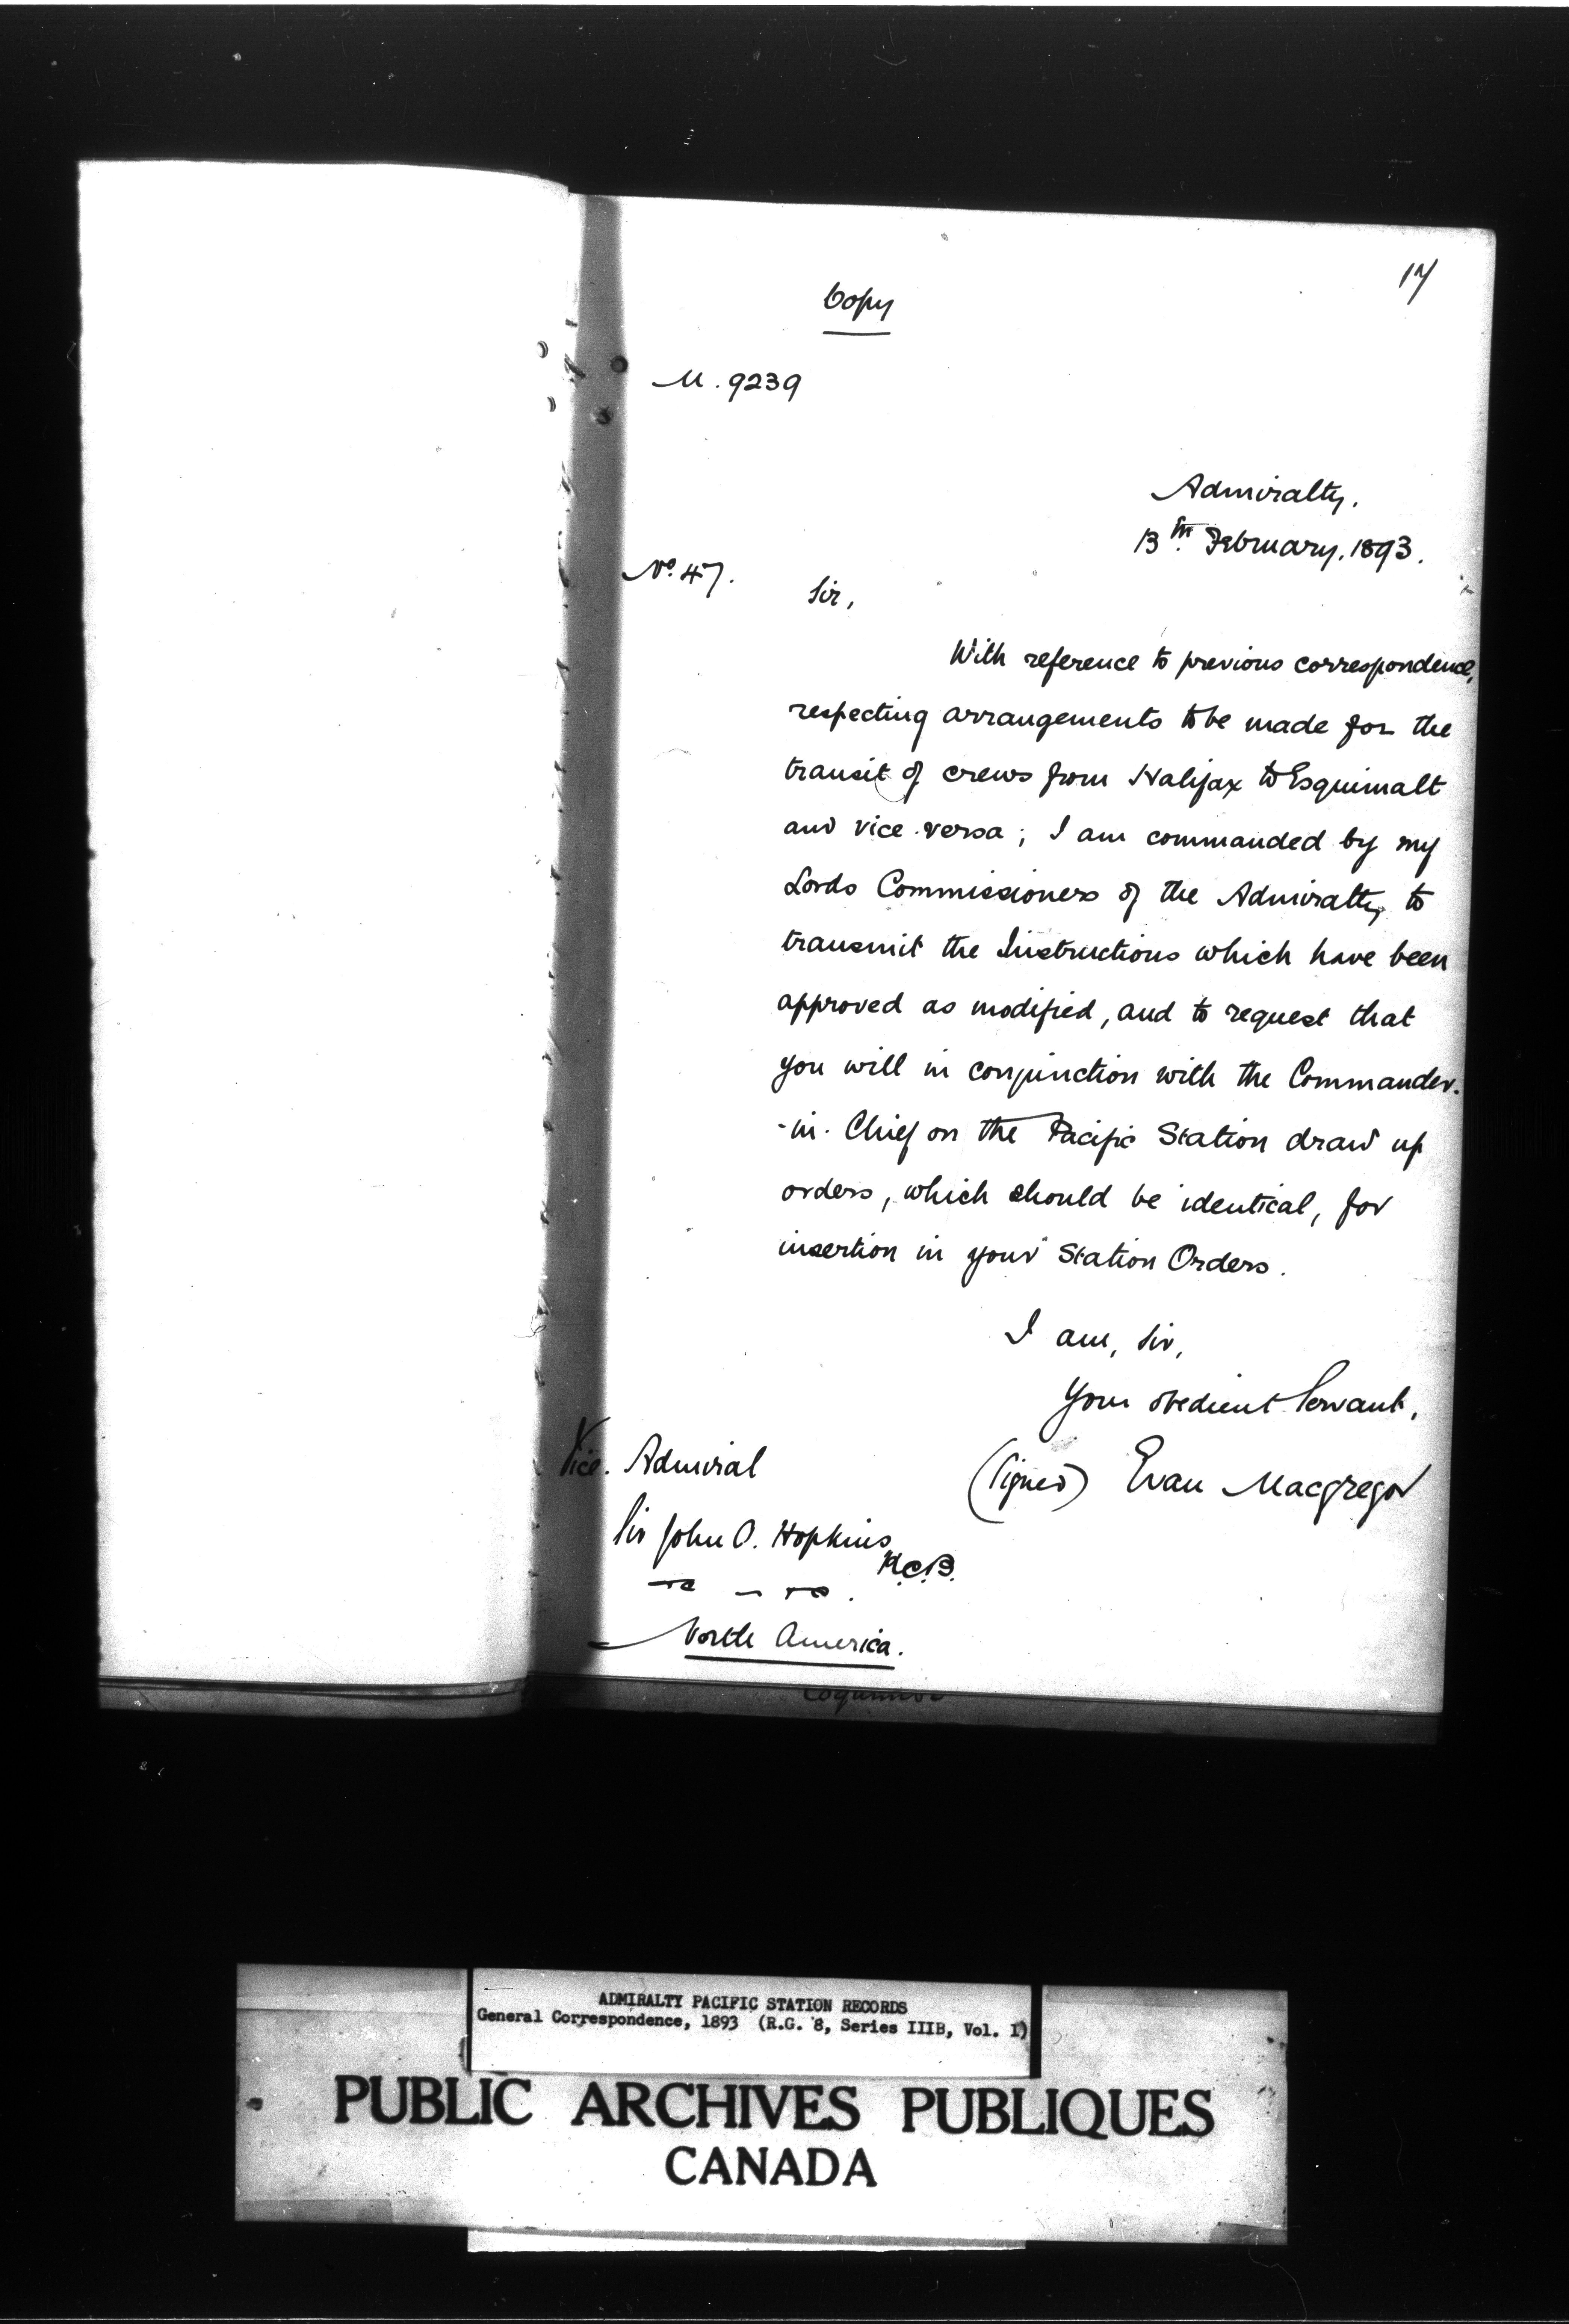 17
Copy
M. 9239
Admiralty.
13th February. 1893.
No. 47.
Sir,
With reference to previous correspondence,
respecting arrangements to be made for the
transit of crews from Halifax to Esquimalt
and vice versa; I am commanded by my
Lords Commissioners of the Admiralty, to
transmit the Instructions which have been
approved as modified, and to request that
you will in conjunction with the Commander-
-in-Chief on the Pacific Station draw up
orders, which should be identical, for
insertion in your Station Orders.
I am, Sir,
Your obedient Servant,
(Signed) Evan Macgregor
Vice. Admiral
Sir John O. Hopkins
K.C.B.
North America.
ADMIRALTY PACIFIC STATION RECORDS
General Correspondence, 1893 (R.G. 8, Series IIIB, Vol. 1)
PUBLIC ARCHIVES PUBLIQUES
CANADA